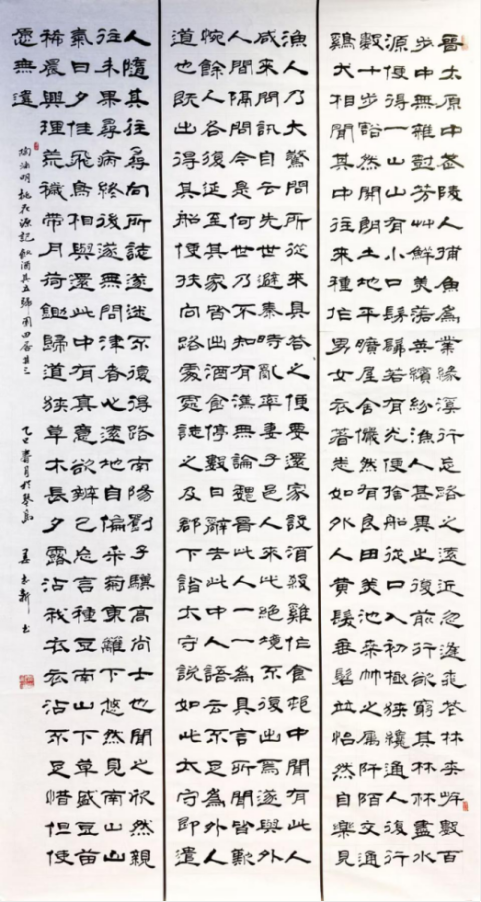 晉太原中武陵人捕魚為業緣溪行忘路之遠近忽逢桃花林夾岸數百
步中無雜樹芳艸鮮美落英繽紛漁人甚異之復前行欲窮其林林盡水
源便得一山山有小口髣髴若有光便捨船從口入初極狹纔通人復行
數十步豁然開朗土地平曠屋舍儼然有良田美池桑竹之屬阡陌交通
雞犬相聞其中往來種作男女衣著悉如外人黃髮垂髫並怡然自樂見
漁人乃大驚問所從來具答之便要還家設酒殺雞作食村中聞有此人
咸來問訊自云先世避秦時亂率妻子邑人來此絕境不復出焉遂與外
人間隔問今是何世乃不知有漢無論魏晉此人一一為具言所聞皆歎
惋餘人各復延至其家皆出酒食停數日辭去此中人語云不足為外人
道也既出得其船便扶向路處處誌之及郡下詣太守說如此太守即遣
人隨其往尋向所誌遂迷不復得路南陽劉子驥高尚士也聞之欣然親
往未果尋病終後遂無問津者心遠地自偏采菊東籬下悠然見南山山
氣日夕佳飛鳥相與還此中有真意欲辨已忘言種豆南山下草盛豆苗
稀晨興理荒穢帶月荷鋤歸道狹草木長夕露沾我衣衣沾不足惜但使
願無違
陶淵明桃花源記飲酒其五歸園田居其三 乙巳 月於 島